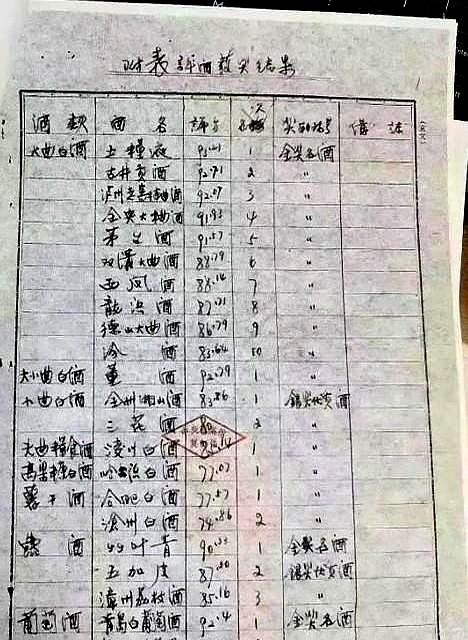 附表 評酒获奖结果
酒 类 酒 名 評分 名次 奖励称号 備 註
大曲白酒 五糧液 1 金奖名酒
古井贡酒 92.71 2 〃
泸州老窖特曲酒 92.07 3 〃
全兴大曲酒 91.93 4 〃
茅台酒 91.57 5 〃
双溝大曲酒 88.79 6 〃
西凤酒 88.14 7 〃
龍浜酒 87.71 8 〃
德山大曲酒 86.79 9 〃
涂 酒 83.64 10 〃
大小曲白酒 董 酒 92.79 1 〃
小曲白酒 全州湘山酒 83.86 1 銀奖优质酒
三花酒 2 〃
大曲糧食酒 凌川白酒 1 〃
高粱糠白酒 哈尔浜白酒 77.07 1 〃
薯干酒 合肥白酒 77.57 1 〃
沧州白酒 74.86 2 〃
露 酒 竹叶青 1 金奖名酒
五加皮 2 銀奖优质酒
漳州荔枝酒 85.16 3 〃
葡萄酒 青島白葡萄酒 92.4 1 金奖名酒